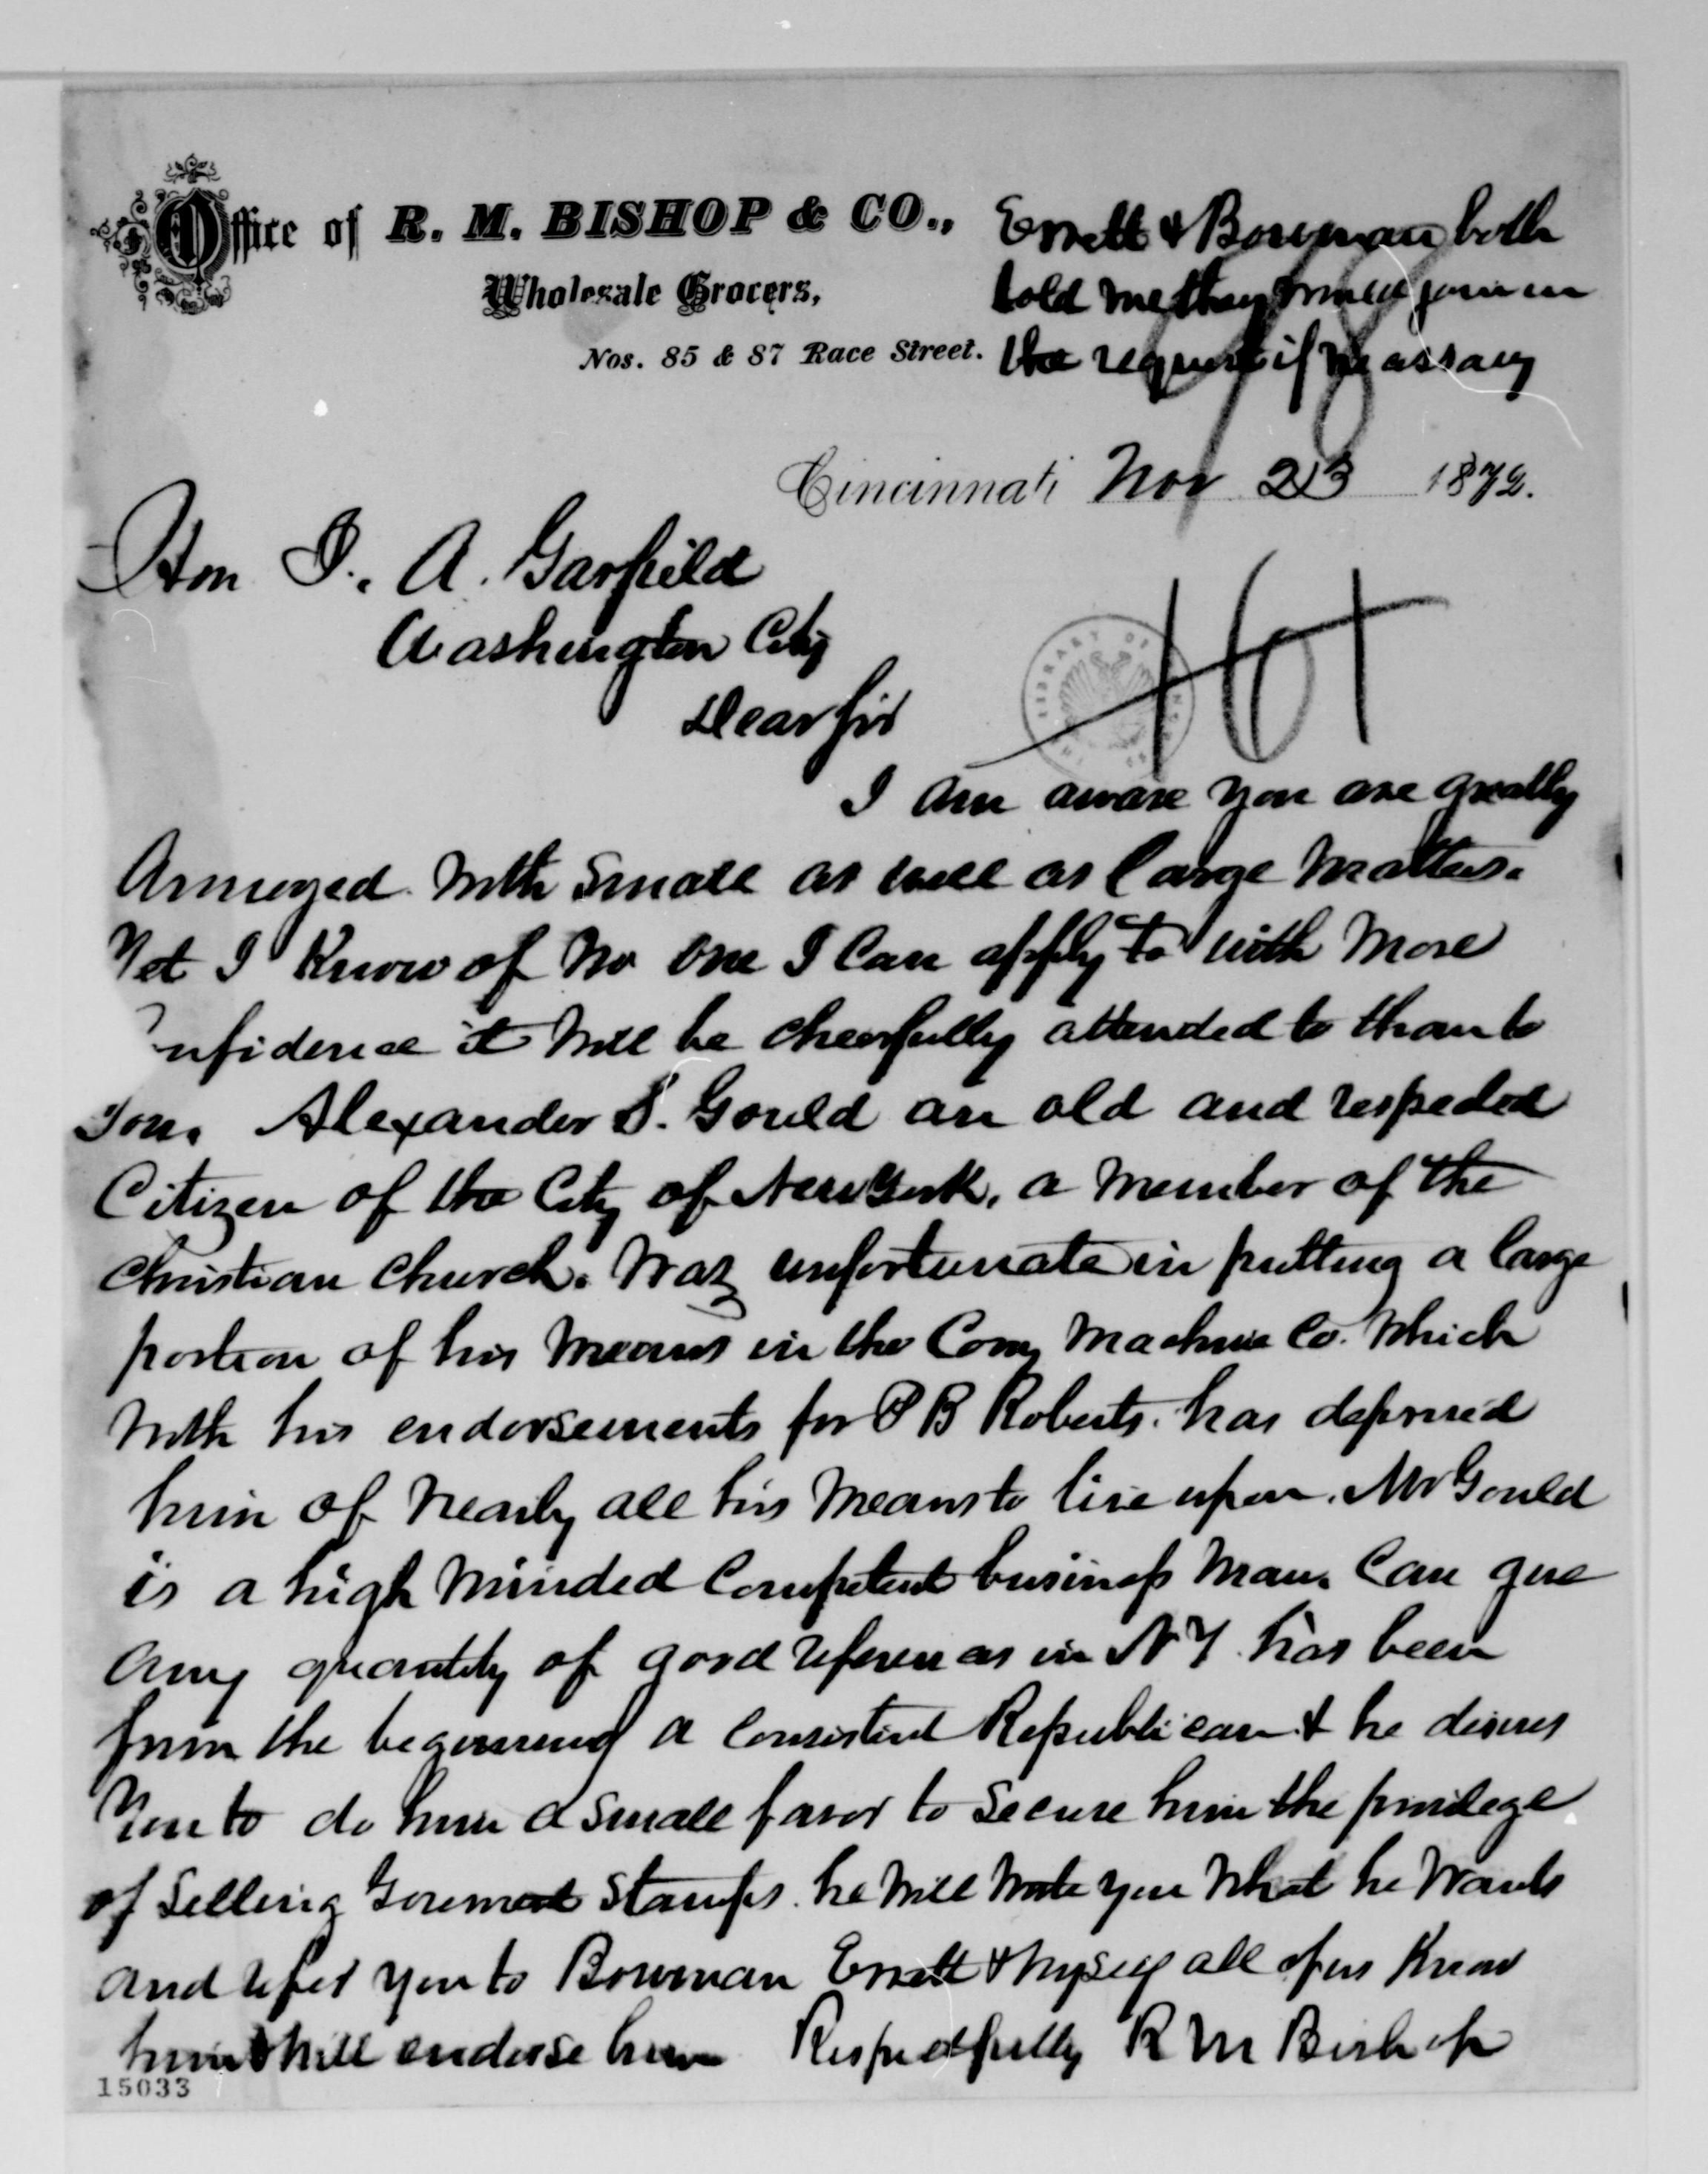 Office of R. M. BISHOP & CO.,
Wholesale Grocers,
Nos. 85 & 87 Race Street.
Errett & Bowman both
told me they would join in
the request if necassary
Cincinnati Nov 23 1872.
Hon J. A. Garfield
Washington City
Dear Sir
I am aware you are greatly
Annoyed with small as well as large matters.
Yet I know of no one I can apply to with more
nfidence it will be cheerfully attended to than to
you. Alexander S. Gould an old and respected
Citizen of the City of New York, a member of the
Christian Church. Was unfortunate in putting a large
portion of his means in the Machine Co. which
with his endorsements for P B Roberts. has deprived
him of nearly all his means to live upon. Mr Gould
is a high minded Competent business man. Can give
Any quantity of good referencs in N Y. has been
from the beginning a Consistent Republican & he desires
you to do him a small favor to secure him the privilege
of selling Goverment Stamps. he will write you what he wants
and refer you to Bowman Errett & myself all of us know
him & will endorse him Respectfully R M Bishop
15033